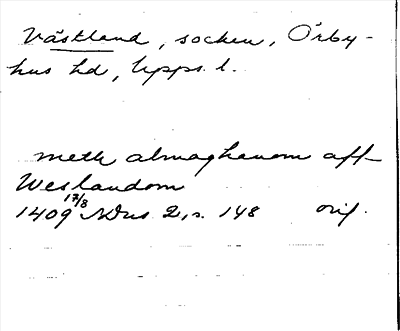 Västland, socken, Örby-
hus hd, Upps. l.
meth almoghenom aff
Weslandom
1409 17/8 NDns 2, s. 148 orig.